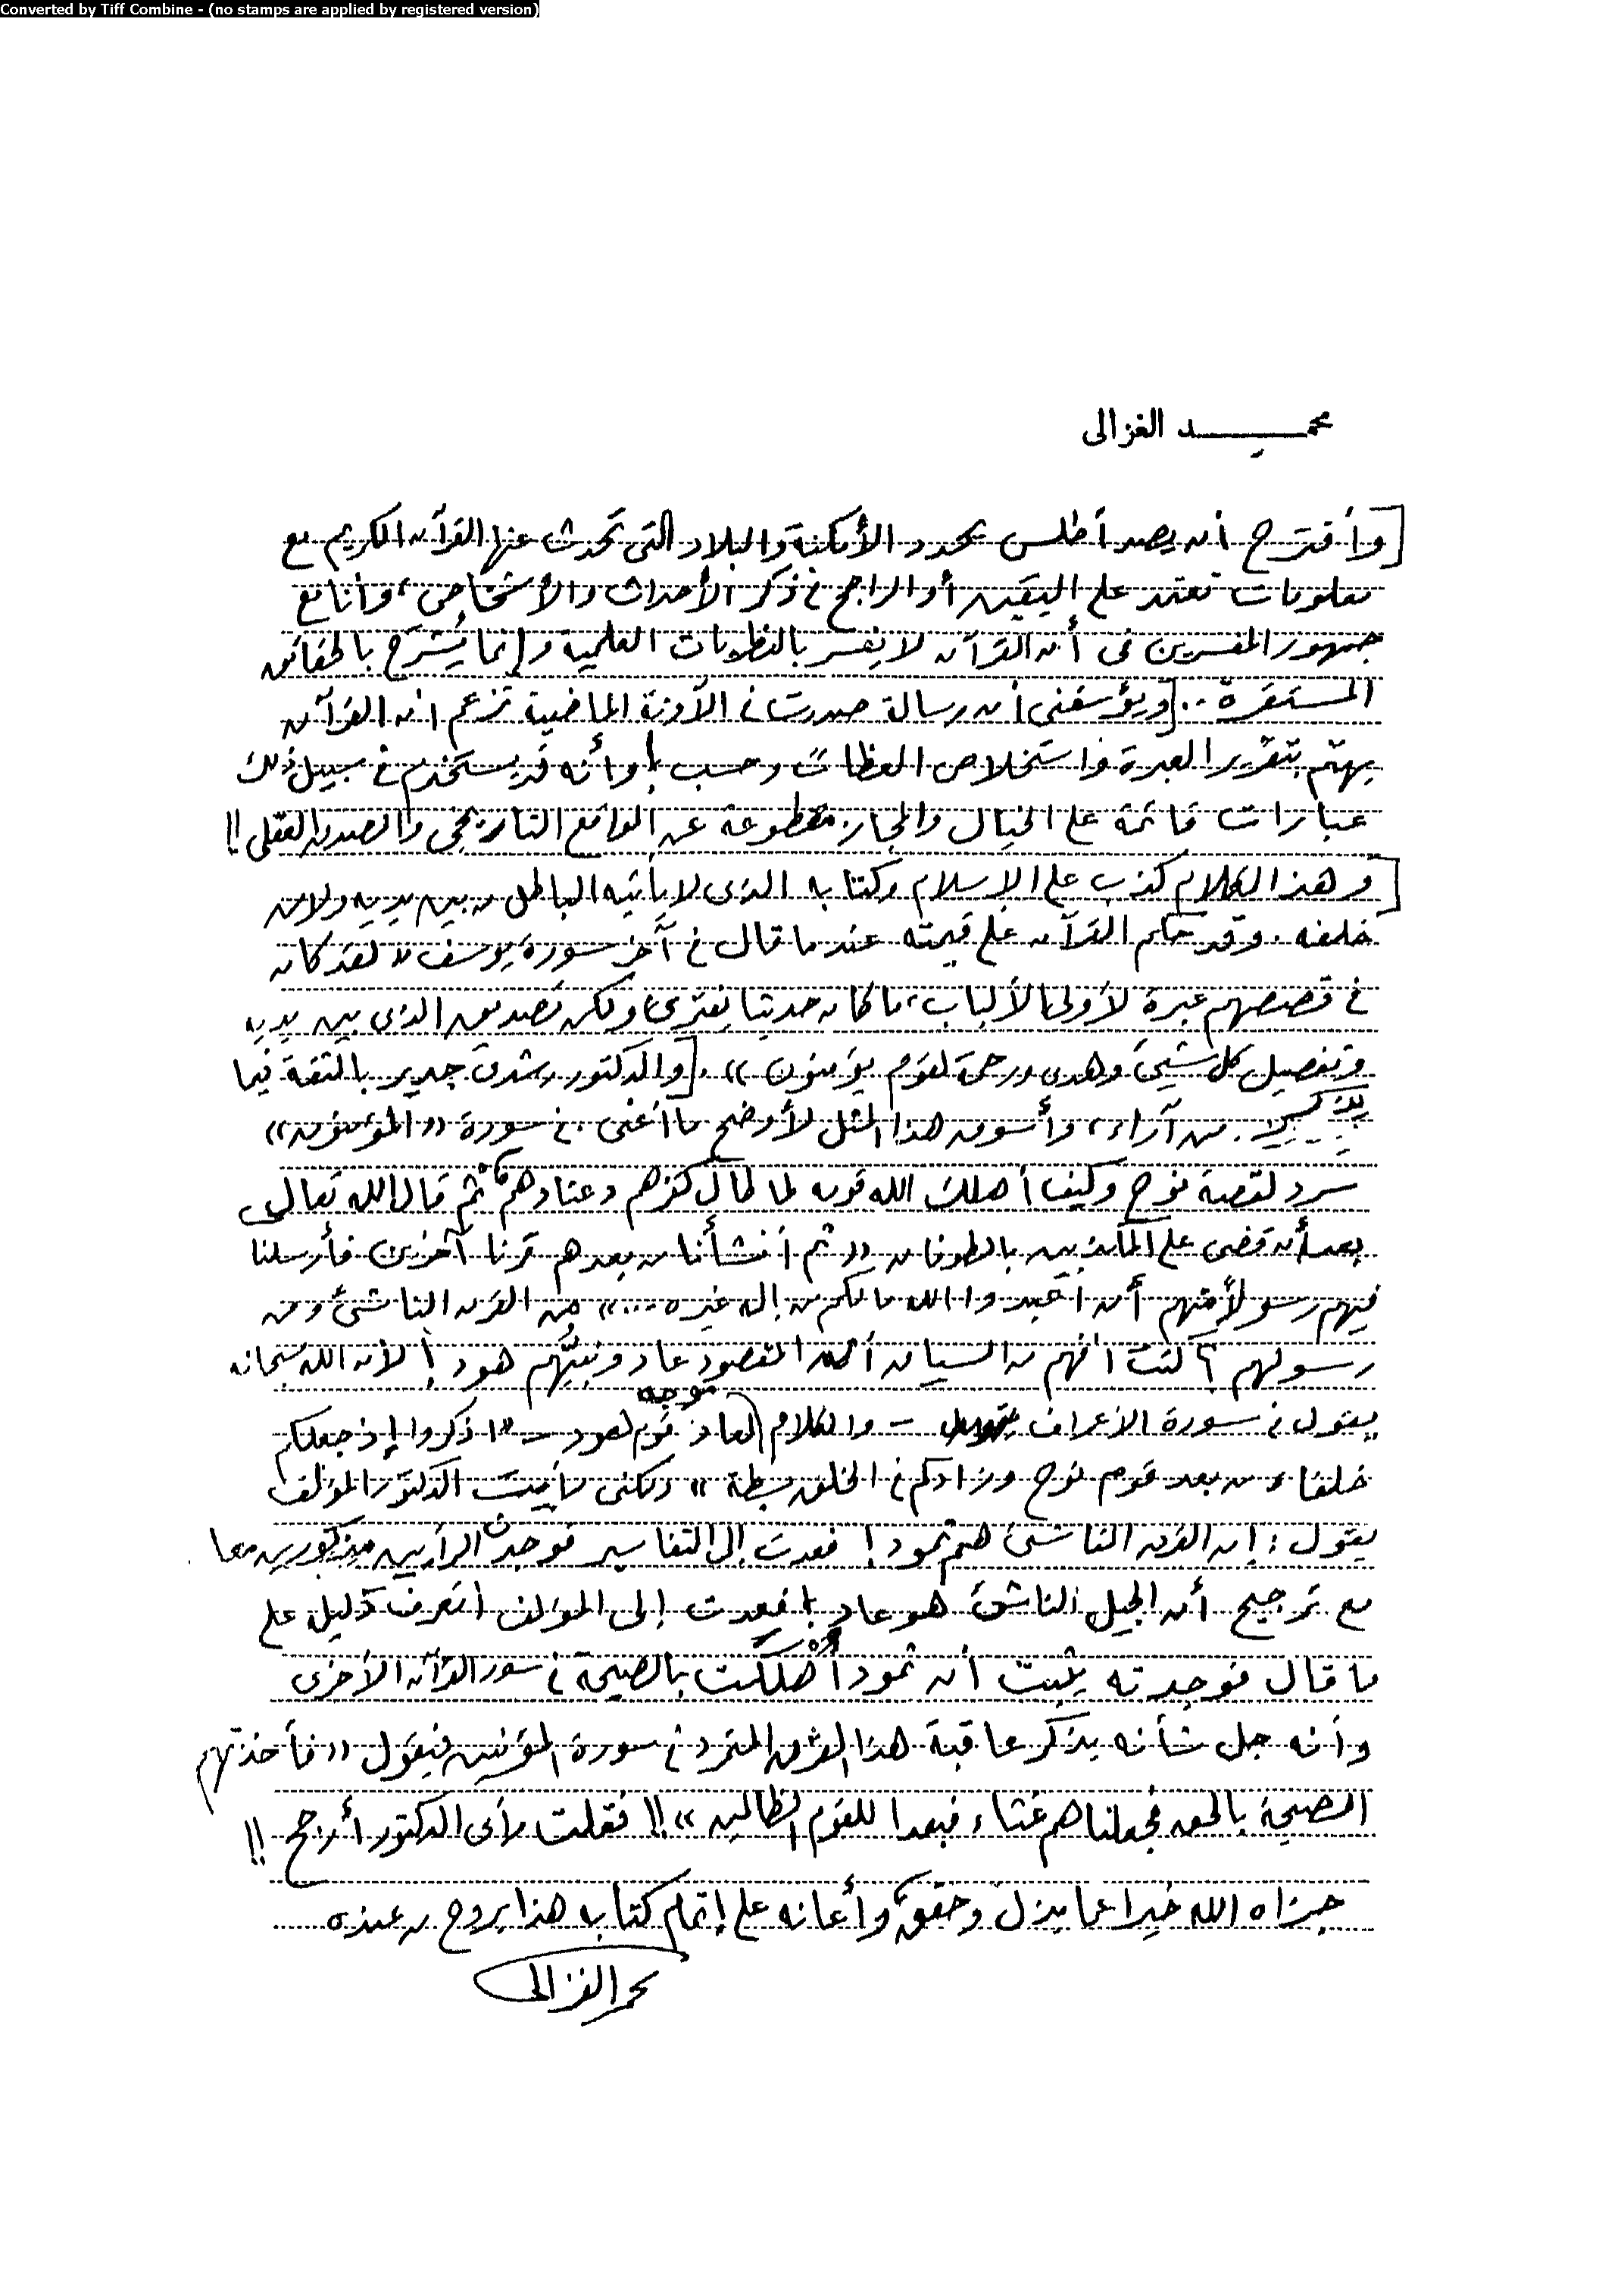 Converted by Tiff Combine - (no stamps are applied by registered version)
محمد الغزالى
[وأقترح أن يصدر أطلس يحدد الأمكنة والبلاد التى تحدث عنها القرآن الكريم مع
معلومات تعتمد على اليقين أو الراجح فى ذكر الأحداث والأشخاص، وأنا مع
جمهور المفسرين فى أن القرآن لا يفسر بالنظريات العلمية وإنما يشرح بالحقائق
المستقرة .. [ويؤسفنى أن رسالة صدرت فى الآونة الماضية تزعم أن القرآن
يهتم بتقرير العبرة واستخلاص العظات وحسب! وأنه قد يستخدم فى سبيل ذلك
عبارات قائمة على الخيال والمجاز مقطوعة عن الواقع التاريخى والصدق العقلى!!
[وهذا الكلام كذب على الإسلام وكتابه الذى لا يأتيه الباطل من بين يديه ولا من
خلفه. وقد حكم القرآن على قيمته عندما قال فى آخر سورة يوسف "لقد كان
فى قصصهم عبرة لأولى الألباب، ما كان حديثا يفترى ولكن تصديق الذى بين يديه
وتفصيل كل شيئ وهدى ورحمة لقوم يؤمنون". [والدكتور رشدى جدير بالثقة فيما
من آراء، وأسوق هذا المثل لأوضح ما أعنى. فى سورة "المؤمنون"
سرد لقصة نوح وكيف أهلك الله قومه لما طال كفرهم وعنادهم، ثم قال الله تعالى
بعد أن قضى على المكذبين بالطوفان "ثم أنشأنا من بعدهم قرنا آخرين فأرسلنا
فيهم رسولا منهم أن اعبدوا الله ما لكم من إله غيره ..." من القرن الناشئ ومن
رسولهم؟ كنت أفهم من السياق أن المقصود عاد ونبيهم هود! لأن الله سبحانه
يقول فى سورة الأعراف - والكلام موجه لعاد قوم هود - "اذكروا إذ جعلكم
خلفاء من بعد قوم نوح وزادكم فى الخلق بسطة" ولكنى رأيت الدكتور المؤلف
يقول: إن القرن الناشئ هم ثمود! فعدت إلى التفاسير فوجدت الرأيين مذكورين معا
مع ترجيح أن الجيل الناشئ هو عاد! فعدت إلى المؤلف أتعرف دليله على
ما قال فوجدته يثبت أن ثمودا أُهلكت بالصيحة فى سور القرآن الأخرى
وأنه جل شأنه يذكر عاقبة هذا القرن المتمرد فى سورة المؤمنين فيقول "فأخذتهم
الصيحة بالحق فجعلناهم غثاء فبعدا للقوم الظالمين"!! فقلت رأى الدكتور أرجح!!
جزاه الله خيرا عما بذل وحقق، وأعانه على إتمام كتابه هذا بروح من عنده
محمد الغزالى